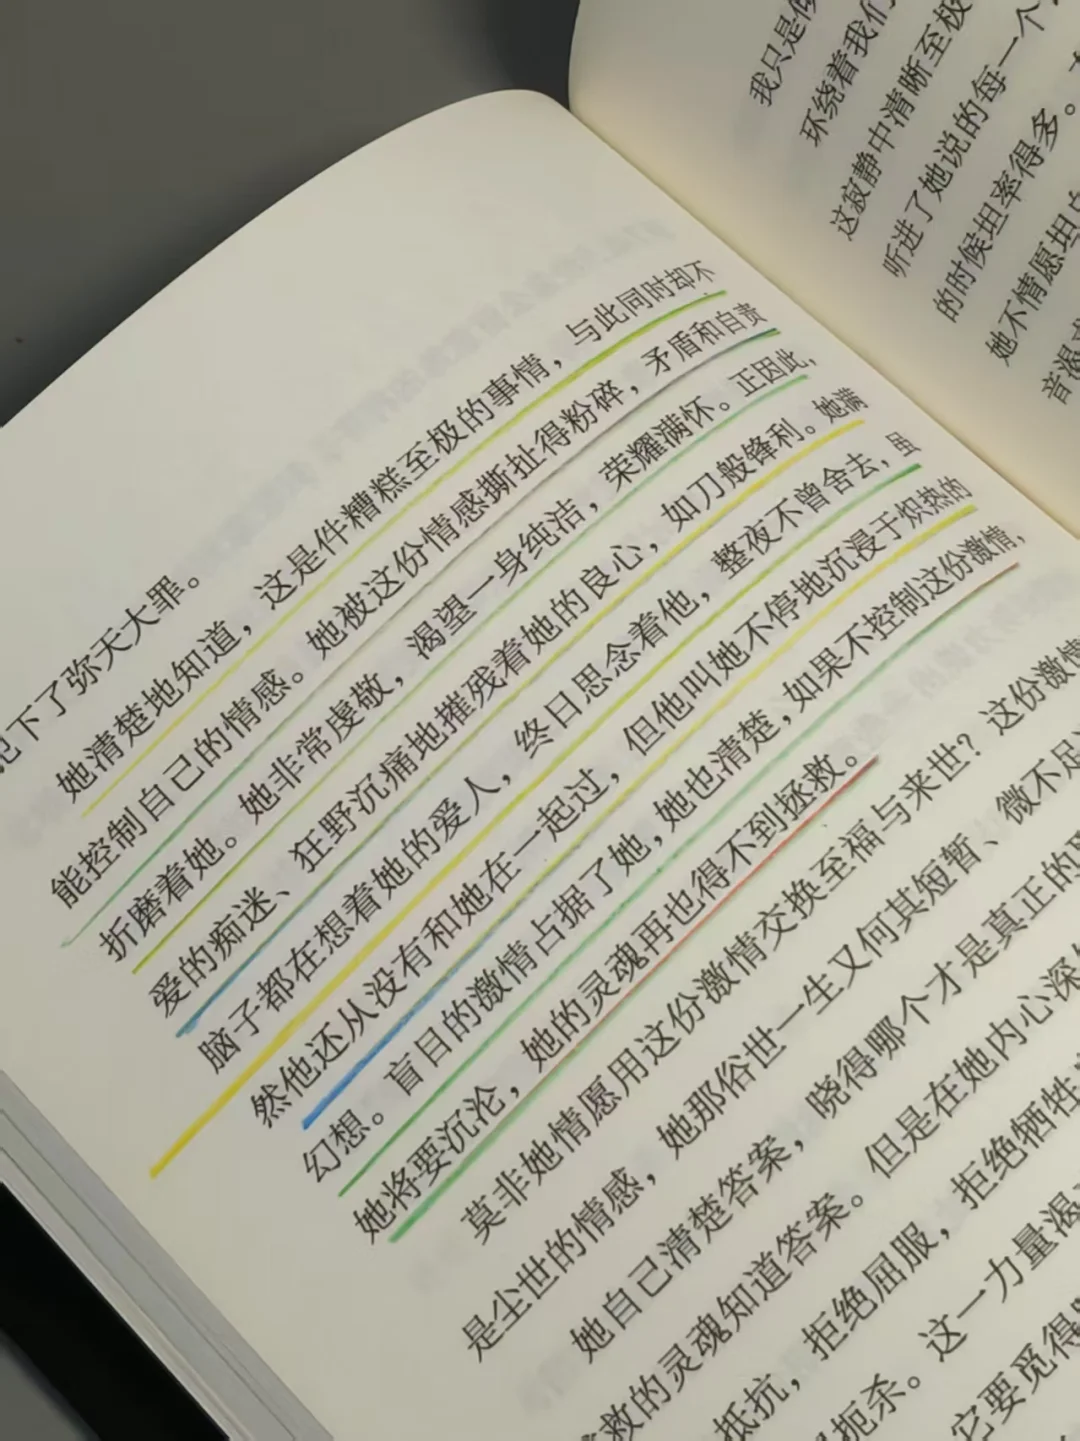 犯下了弥天大罪。
她清楚地知道，这是件糟糕至极的事情，与此同时却不
能控制自己的情感。她被这份情感撕扯得粉碎，矛盾和自责
折磨着她。她非常虔敬，渴望一身纯洁，荣耀满怀。正因此，
爱的痴迷、狂野沉痛地摧残着她的良心，如刀般锋利。她满
脑子都在想着她的爱人，终日思念着他，整夜不曾舍去，虽
然他还从没有和她在一起过，但他叫她不停地沉浸于炽热的
幻想。盲目的激情占据了她，她也清楚，如果不控制这份激情，
她将要沉沦，她的灵魂再也得不到拯救。
莫非她情愿用这份激情交换至福与来世？这份激情
是尘世的情感，她那俗世一生又何其短暂、微不足
她自己清楚答案，晓得哪个才是真正的
救的灵魂知道答案。但是在她内心深
抵抗，拒绝屈服，拒绝牺牲
扼杀。这一力量渴
它要觅得
我只是
环绕着我们
这寂静中清晰至极
听进了她说的每一个
的时候坦率得多。
她不情愿坦
音渴